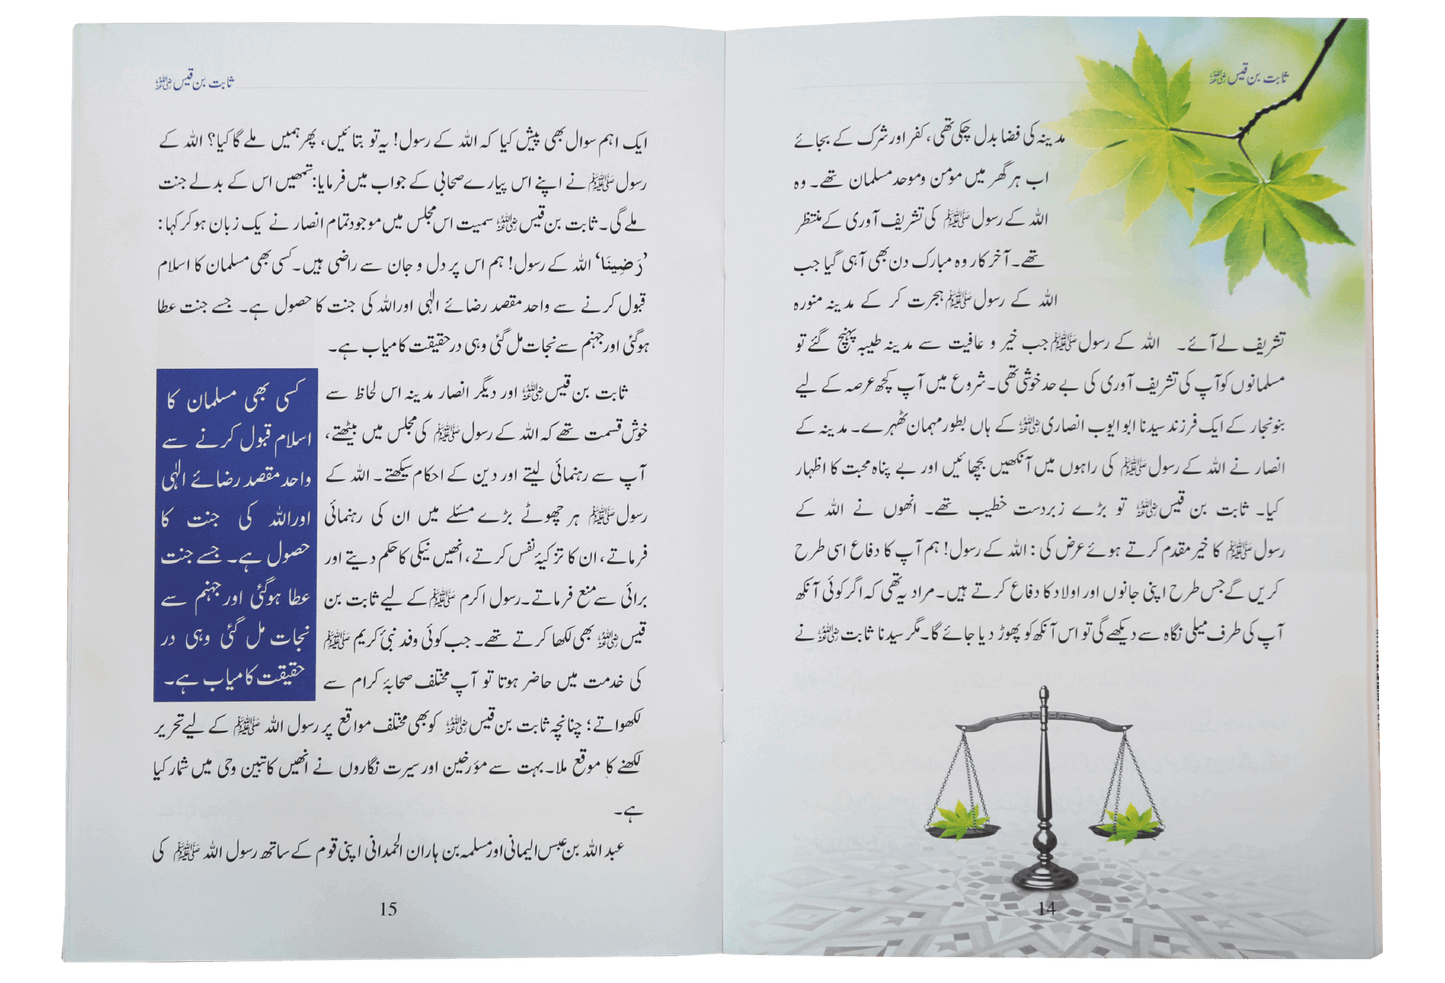 ثابت بن قیس رضی اللہ عنہ
مدینہ کی فضا بدل چکی تھی، کفر اور شرک کے بجائے
اب ہر گھر میں مومن وموحد مسلمان تھے۔ وہ
اللہ کے رسول ﷺ کی تشریف آوری کے منتظر
تھے۔ آخر کار وہ مبارک دن بھی آ ہی گیا جب
اللہ کے رسول ﷺ ہجرت کر کے مدینہ منورہ
تشریف لے آئے۔ اللہ کے رسول ﷺ جب خیر و عافیت سے مدینہ طیبہ پہنچ گئے تو
مسلمانوں کو آپ کی تشریف آوری کی بے حد خوشی تھی۔ شروع میں آپ کچھ عرصہ کے لیے
بنو نجار کے ایک فرزند سیدنا ابو ایوب انصاری رضی اللہ عنہ کے ہاں بطور مہمان ٹھہرے۔ مدینہ کے
انصار نے اللہ کے رسول ﷺ کی راہوں میں آنکھیں بچھائیں اور بے پناہ محبت کا اظہار
کیا۔ ثابت بن قیس رضی اللہ عنہ تو بڑے زبردست خطیب تھے۔ انھوں نے اللہ کے
رسول ﷺ کا خیر مقدم کرتے ہوئے عرض کی: اللہ کے رسول! ہم آپ کا دفاع اسی طرح
کریں گے جس طرح اپنی جانوں اور اولاد کا دفاع کرتے ہیں۔ مراد یہ تھی کہ اگر کوئی آنکھ
آپ کی طرف میلی نگاہ سے دیکھے گی تو اس آنکھ کو پھوڑ دیا جائے گا۔ مگر سیدنا ثابت رضی اللہ عنہ نے
14
ثابت بن قیس رضی اللہ عنہ
ایک اہم سوال بھی پیش کیا کہ اللہ کے رسول! یہ تو بتائیں، پھر ہمیں ملے گا کیا؟ اللہ کے
رسول ﷺ نے اپنے اس پیارے صحابی کے جواب میں فرمایا: تمھیں اس کے بدلے جنت
ملے گی۔ ثابت بن قیس رضی اللہ عنہ سمیت اس مجلس میں موجود تمام انصار نے یک زبان ہو کر کہا:
’رَضِينَا‘ اللہ کے رسول! ہم اس پر دل و جان سے راضی ہیں۔ کسی بھی مسلمان کا اسلام
قبول کرنے سے واحد مقصد رضائے الٰہی اور اللہ کی جنت کا حصول ہے۔ جسے جنت عطا
ہوگئی اور جہنم سے نجات مل گئی وہی درحقیقت کامیاب ہے۔
ثابت بن قیس رضی اللہ عنہ اور دیگر انصار مدینہ اس لحاظ سے
خوش قسمت تھے کہ اللہ کے رسول ﷺ کی مجلس میں بیٹھتے،
آپ سے رہنمائی لیتے اور دین کے احکام سیکھتے۔ اللہ کے
رسول ﷺ ہر چھوٹے بڑے مسئلے میں ان کی رہنمائی
فرماتے، ان کا تزکیۂ نفس کرتے، انھیں نیکی کا حکم دیتے اور
برائی سے منع فرماتے۔ رسول اکرم ﷺ کے لیے ثابت بن
قیس رضی اللہ عنہ بھی لکھا کرتے تھے۔ جب کوئی وفد نبیٔ کریم ﷺ
کی خدمت میں حاضر ہوتا تو آپ مختلف صحابۂ کرام سے
لکھواتے؛ چنانچہ ثابت بن قیس رضی اللہ عنہ کو بھی مختلف مواقع پر رسول اللہ ﷺ کے لیے تحریر
لکھنے کا موقع ملا۔ بہت سے مؤرخین اور سیرت نگاروں نے انھیں کاتبین وحی میں شمار کیا
ہے۔
عبد اللہ بن عبس الیمانی اور مسلمہ بن ہاران الحمدانی اپنی قوم کے ساتھ رسول اللہ ﷺ کی
کسی بھی مسلمان کا
اسلام قبول کرنے سے
واحد مقصد رضائے الٰہی
اور اللہ کی جنت کا
حصول ہے۔ جسے جنت
عطا ہوگئی اور جہنم سے
نجات مل گئی وہی در
حقیقت کامیاب ہے۔
15